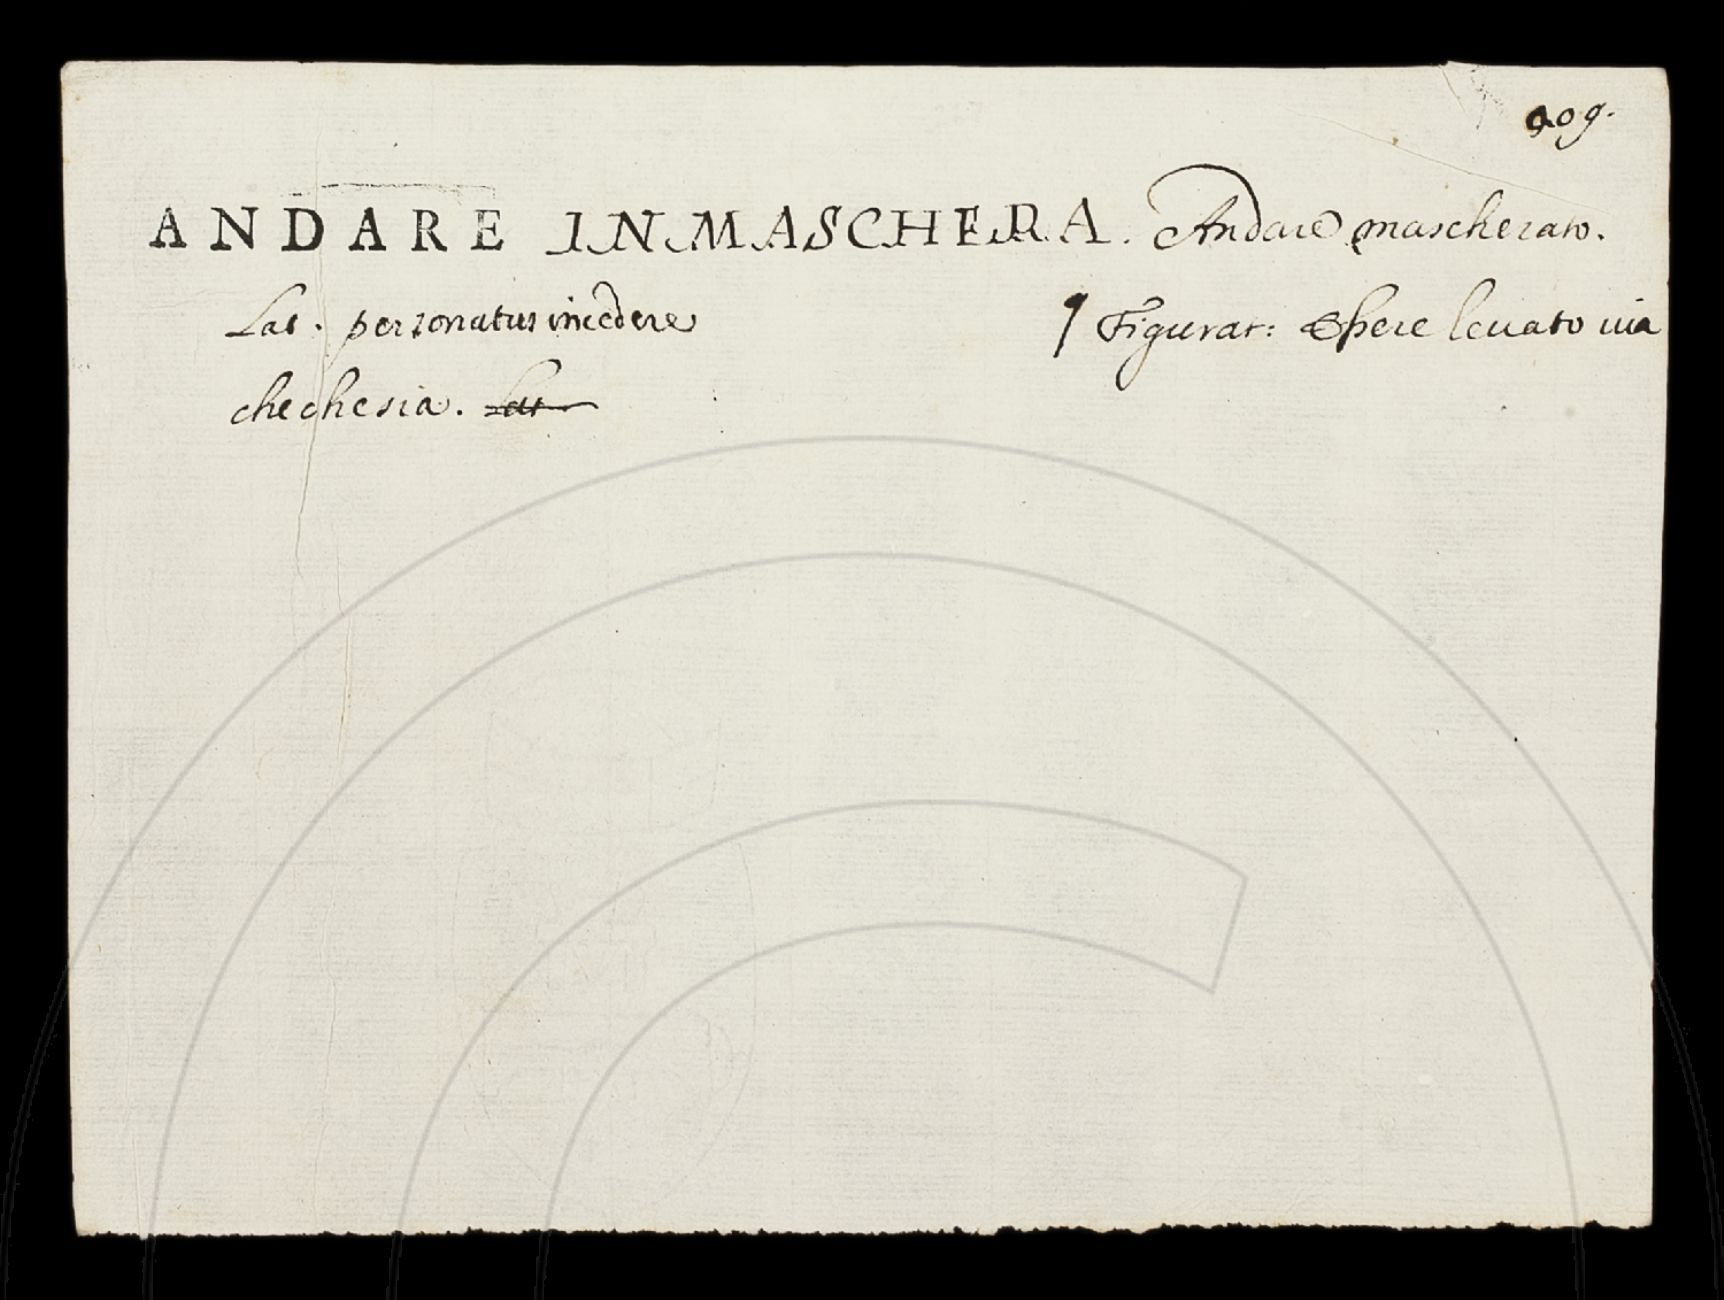 909.
ANDARE IN MASCHERA. Andare mascherato.
Lat. personatus incedere ¶ Figurat: Essere leuato uia
chechesia. Lat